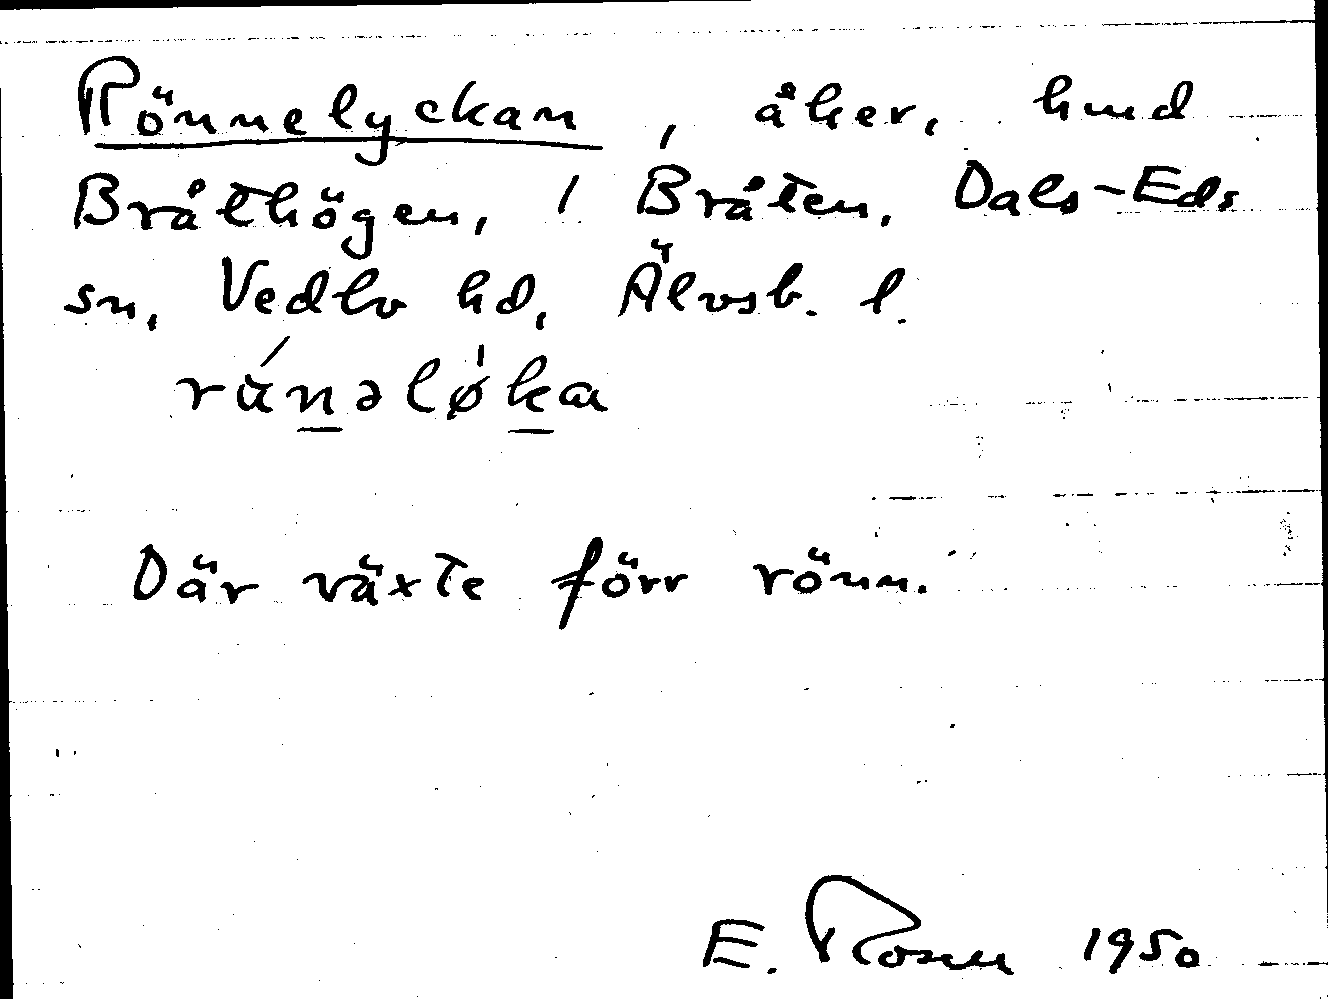 Rönnelyckan, åker, hmd
Bråthögen, 1 Bråten, Dals-Eds
sn, Vedbo hd, Älvsb. l.
Där växte förr rönn.
E. Rosen 1950